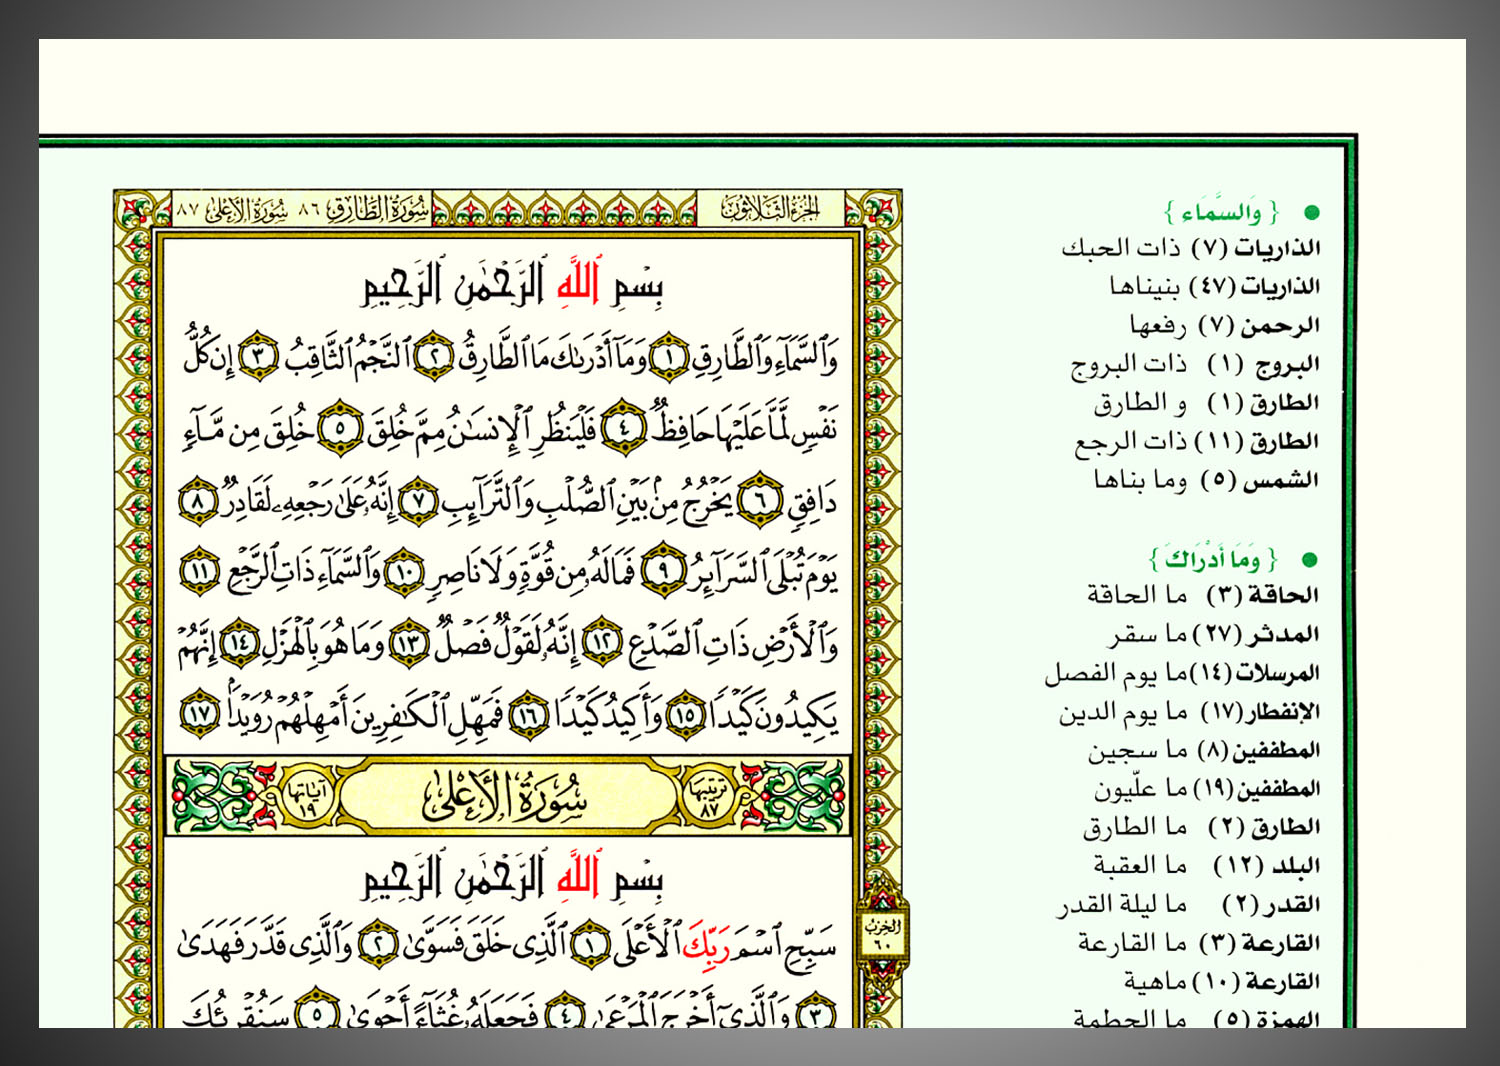 الجزء الثلاثون
سورة الطارق ٨٦ سورة الأعلى ٨٧
بِسْمِ ٱللَّهِ ٱلرَّحْمَٰنِ ٱلرَّحِيمِ
وَٱلسَّمَآءِ وَٱلطَّارِقِ ١ وَمَآ أَدْرَىٰكَ مَا ٱلطَّارِقُ ٢ ٱلنَّجْمُ ٱلثَّاقِبُ ٣ إِن كُلُّ
نَفْسٍ لَّمَّا عَلَيْهَا حَافِظٌ ٤ فَلْيَنظُرِ ٱلْإِنسَٰنُ مِمَّ خُلِقَ ٥ خُلِقَ مِن مَّآءٍ
دَافِقٍ ٦ يَخْرُجُ مِنۢ بَيْنِ ٱلصُّلْبِ وَٱلتَّرَآئِبِ ٧ إِنَّهُۥ عَلَىٰ رَجْعِهِۦ لَقَادِرٌ ٨
يَوْمَ تُبْلَى ٱلسَّرَآئِرُ ٩ فَمَا لَهُۥ مِن قُوَّةٍ وَلَا نَاصِرٍ ١٠ وَٱلسَّمَآءِ ذَاتِ ٱلرَّجْعِ ١١
وَٱلْأَرْضِ ذَاتِ ٱلصَّدْعِ ١٢ إِنَّهُۥ لَقَوْلٌ فَصْلٌ ١٣ وَمَا هُوَ بِٱلْهَزْلِ ١٤ إِنَّهُمْ
يَكِيدُونَ كَيْدًا ١٥ وَأَكِيدُ كَيْدًا ١٦ فَمَهِّلِ ٱلْكَٰفِرِينَ أَمْهِلْهُمْ رُوَيْدًۢا ١٧
ترتيبها ٨٧ سُورَةُ الأَعْلَى آياتها ١٩
بِسْمِ ٱللَّهِ ٱلرَّحْمَٰنِ ٱلرَّحِيمِ
سَبِّحِ ٱسْمَ رَبِّكَ ٱلْأَعْلَى ١ ٱلَّذِى خَلَقَ فَسَوَّىٰ ٢ وَٱلَّذِى قَدَّرَ فَهَدَىٰ
٣ وَٱلَّذِىٓ أَخْرَجَ ٱلْمَرْعَىٰ ٤ فَجَعَلَهُۥ غُثَآءً أَحْوَىٰ ٥ سَنُقْرِئُكَ
الحزب ٦٠
{ وَالسَّمَاء }
الذاريات (٧) ذات الحبك
الذاريات (٤٧) بنيناها
الرحمن (٧) رفعها
البروج (١) ذات البروج
الطارق (١) و الطارق
الطارق (١١) ذات الرجع
الشمس (٥) وما بناها
{ وَمَا أدْرَاكَ }
الحاقة (٣) ما الحاقة
المدثر (٢٧) ما سقر
المرسلات (١٤) ما يوم الفصل
الإنفطار (١٧) ما يوم الدين
المطففين (٨) ما سجين
المطففين (١٩) ما علّيون
الطارق (٢) ما الطارق
البلد (١٢) ما العقبة
القدر (٢) ما ليلة القدر
القارعة (٣) ما القارعة
القارعة (١٠) ماهية
الهمزة (٥) ما الحطمة